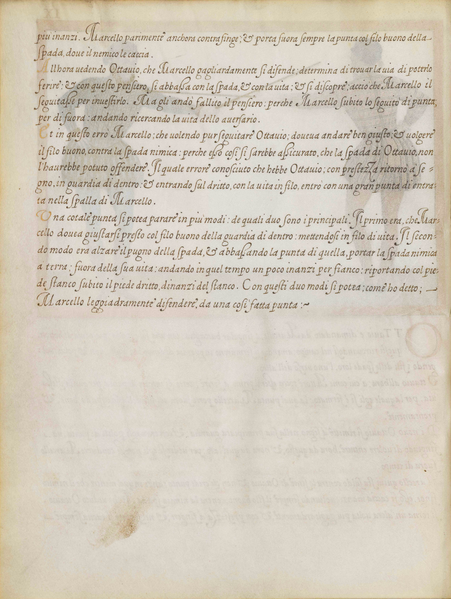 piu inanzi. Marcello parimente anchora contrafinge; & porta fuora sempre la punta col filo buono della
spada, doue il nemico le caccia.
Allhora uedendo Ottauio, che Marcello gagliardamente si difende, determina di trouar la uia di poterlo
ferire; & con questo pensiero, si abbassa con la spada, & con la uita; & si discopre, accio che Marcello il
seguitasse per inuestirlo. Ma gli andò fallito il pensiero: perche Marcello subito lo seguitò di punta,
per di fuora: andando ricercando la uita dello auersario.
Et in questo errò Marcello; che uolendo pur seguitare Ottauio; doueua andare ben giusto; & uolgere
il filo buono, contra la spada nimica: perche esso così si sarebbe assicurato, che la spada di Ottauio, non
l'haurebbe potuto offendere. Il quale errore conosciuto che hebbe Ottauio; con prestezza ritornò a se-
gno, in guardia di dentro: & entrando sul dritto, con la uita in filo, entrò con una gran punta di entra-
ta nella spalla di Marcello.
Una cotale punta si potea parare in piu modi: de quali duo sono i principali. Il primo ene, che Mar-
cello douea giustarsi presto col filo buono della guardia di dentro: mettendosi in filo di uita. Il secon-
do modo era alzare il pugno della spada, & abbassando la punta di quella, portar la spada nimica
a terra; fuora della sua uita: andando in quel tempo un poco inanzi per fianco; riportando col pie-
de stanco subito il piede dritto, dinanzi del stanco. Con questi duo modi si potea; come ho detto; —
Marcello leggiadramente difendere, da una così fatta punta :~